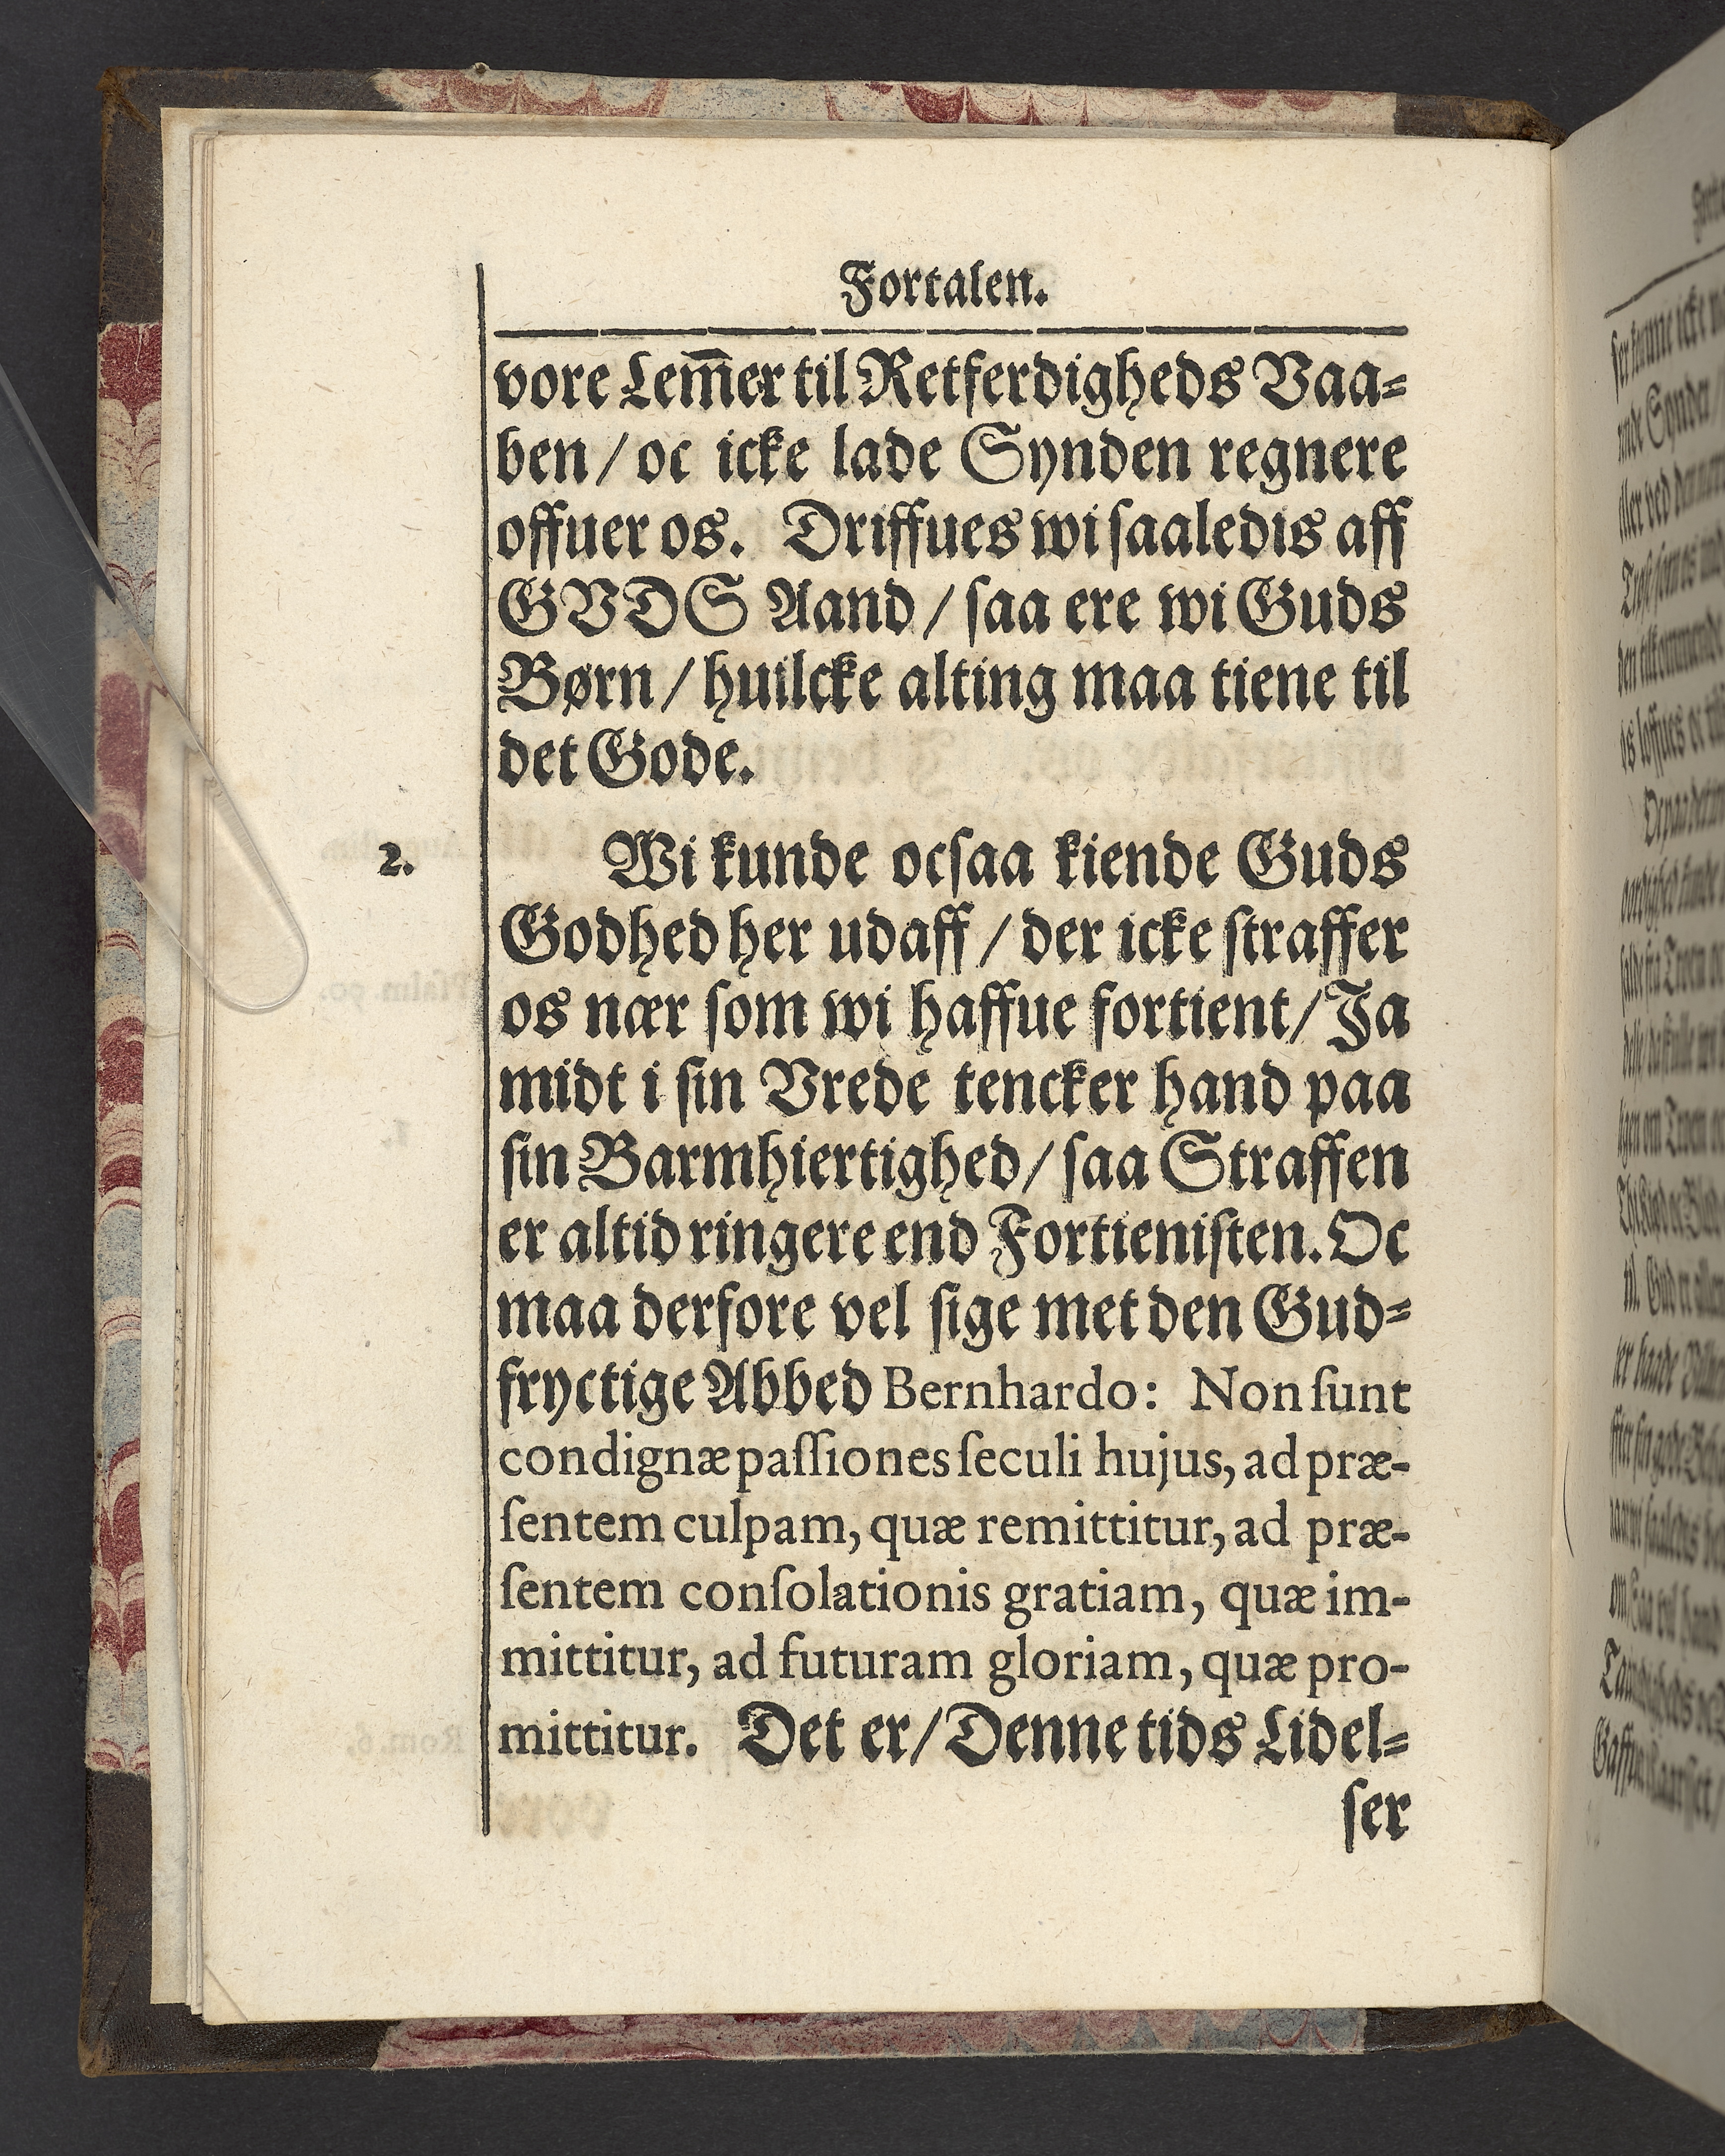 Fortalen.
vore Lem̅er til Retferdigheds Vaa⸗
ben / oc icke lade Synden regnere
offuer os. Driffues wi ſaaledis aff
GVDS Aand / ſaa ere wi Guds
Børn / huilcke alting maa tiene til
det Gode.
2.
Wi kunde ocſaa kiende Guds
Godhed her udaff / der icke ſtraffer
os nær ſom wi haffue fortient / Ja
midt i ſin Vrede tencker hand paa
ſin Barmhiertighed / ſaa Straffen
er altid ringere end Fortieniſten. Oc
maa derfore vel ſige met den Gud⸗
fryctige Abbed Bernhardo: Non ſunt
condignæ paſſiones ſeculi hujus, ad præ-
ſentem culpam, quæ remittitur, ad præ-
ſentem conſolationis gratiam, quæ im-
mittitur, ad futuram gloriam, quæ pro-
mittitur. Det er / Denne tids Lidel⸗
ſer